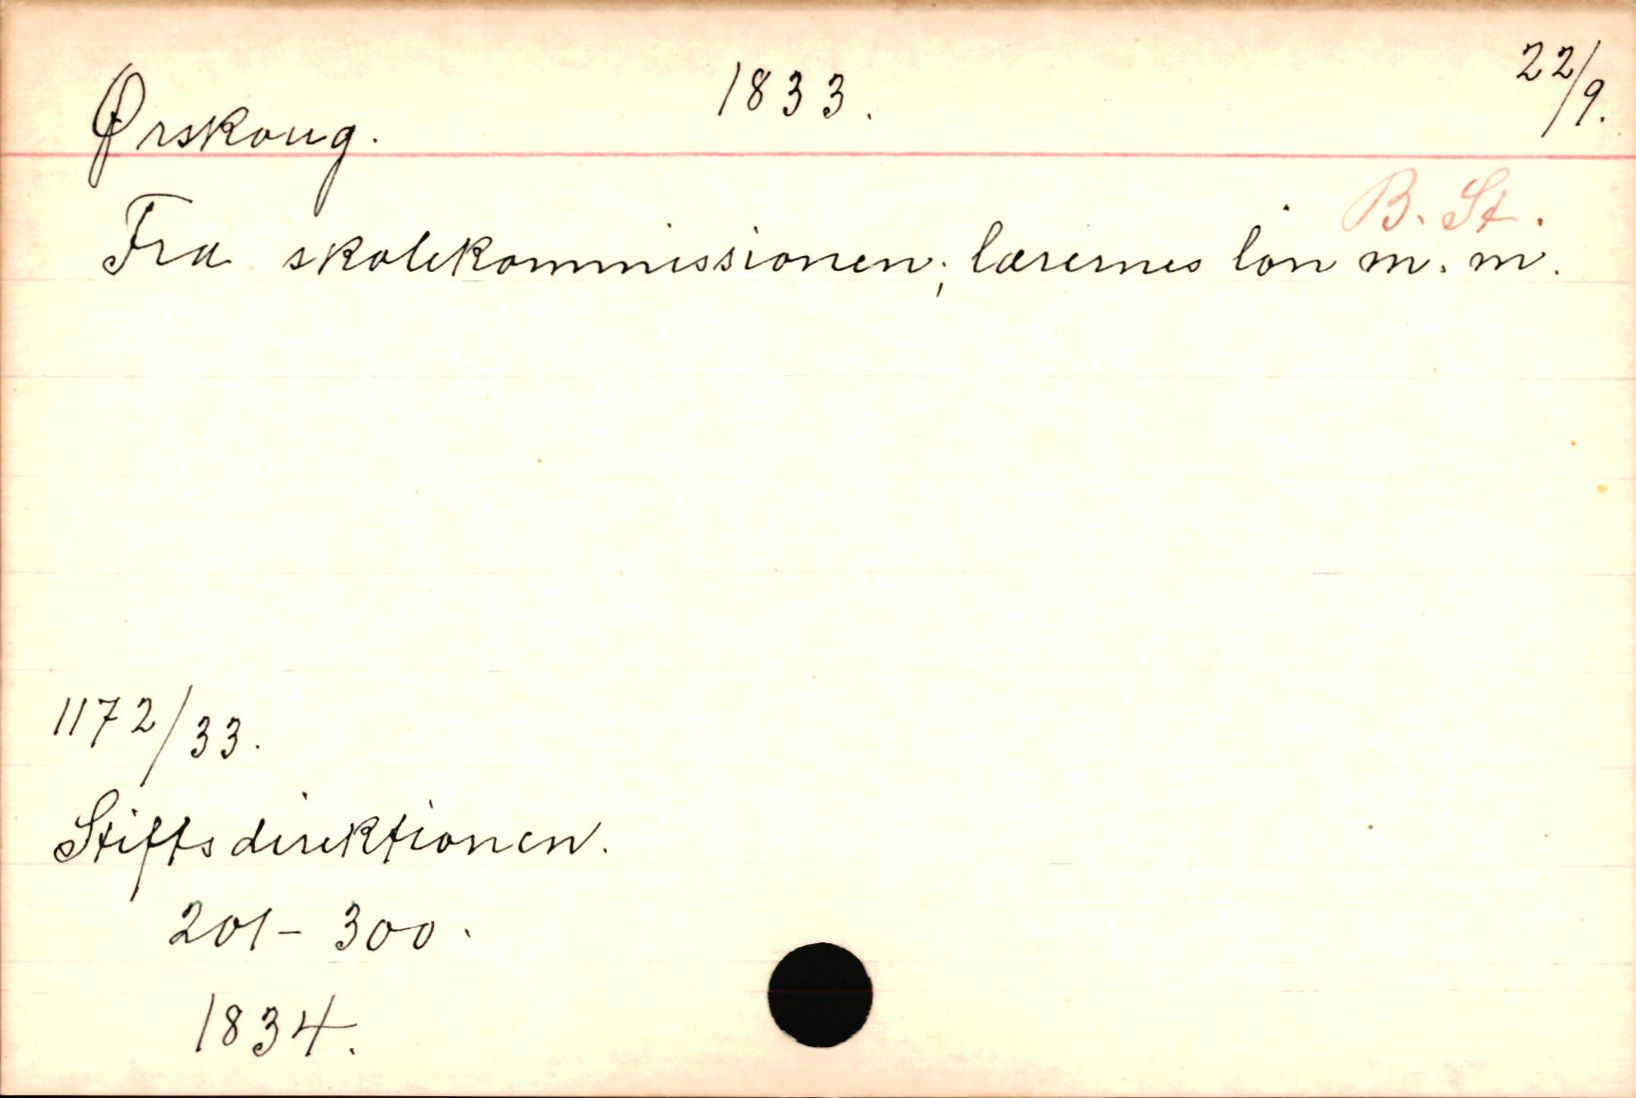 Ørskoug. 1833. 22/9.
B. St.
Fra skolekommissionen; lærernes lön m. m.
1172/33.
Stiftsdirektionen.
201-300.
1834.